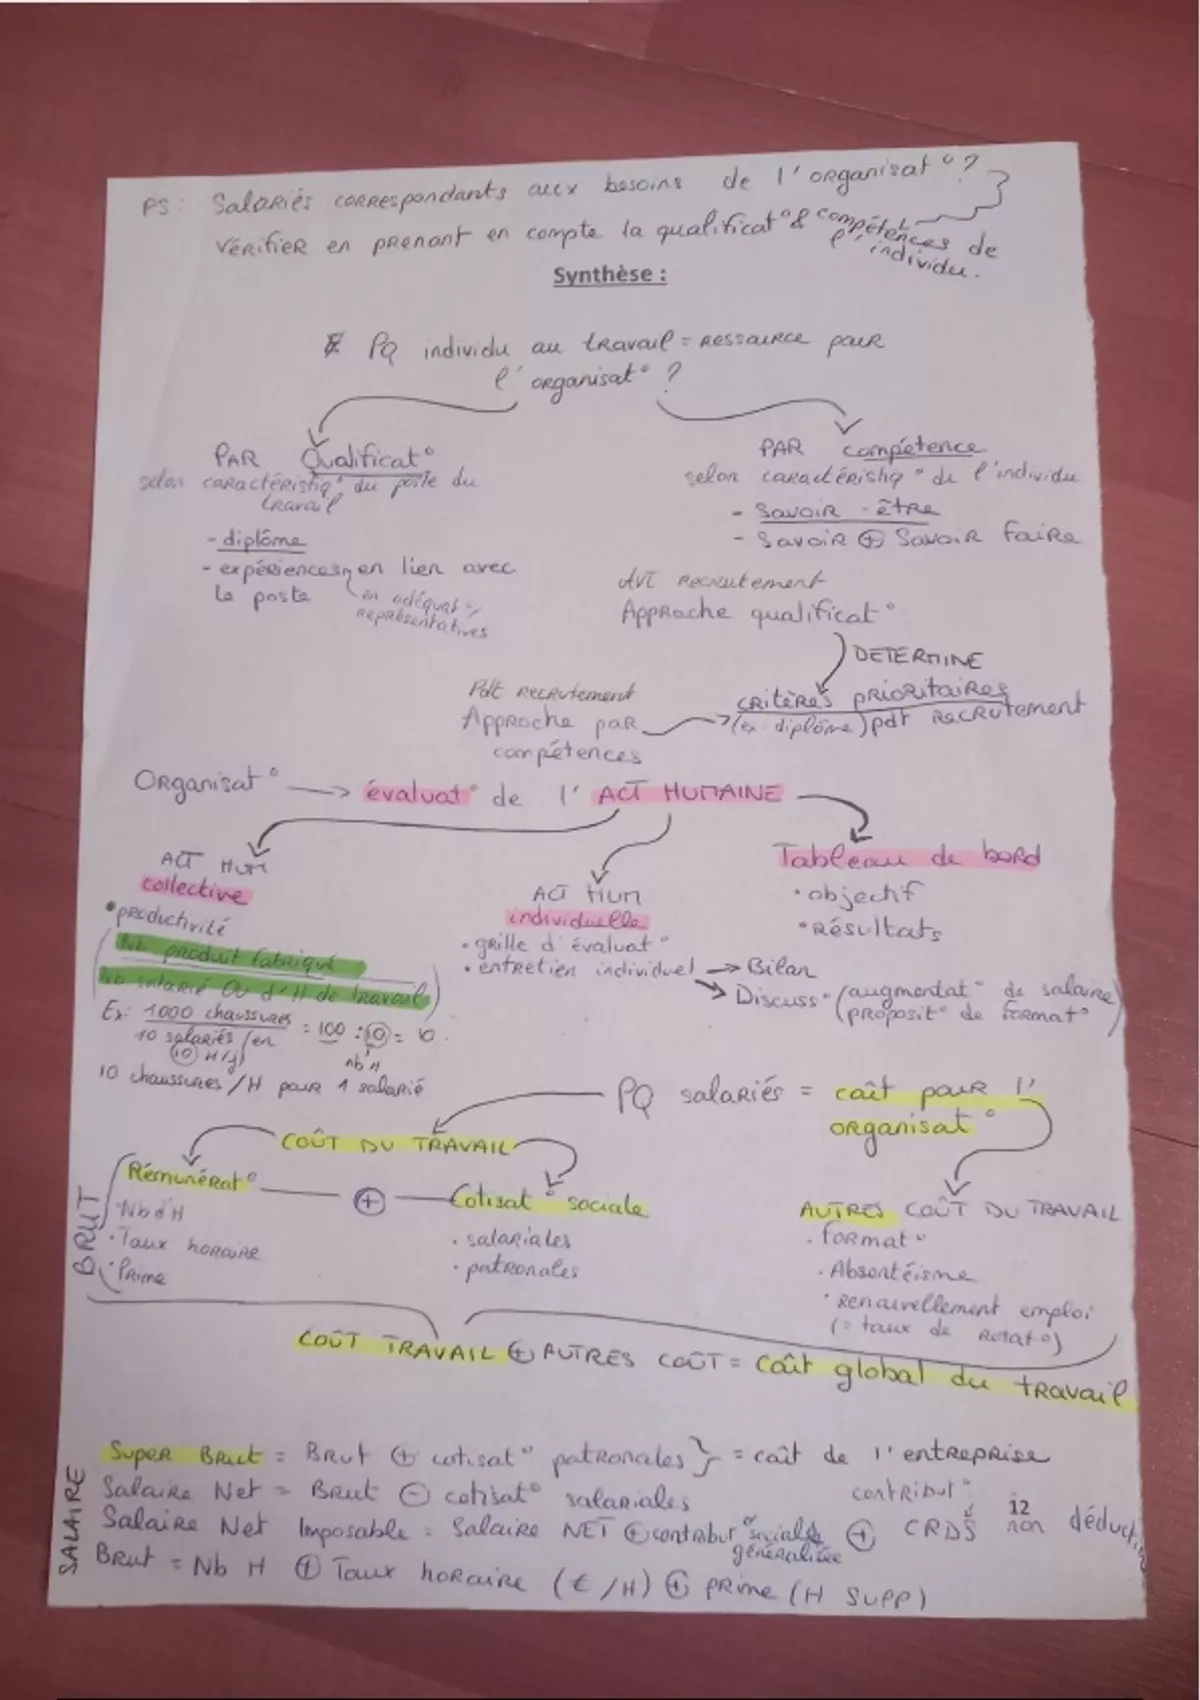 PS : Salariés correspondants aux besoins de l'organisat° ?
Vérifier en prenant en compte la qualificat° & compétences de l'individu.
Synthèse :
PQ individu au travail = ressource pour
l'organisat° ?
PAR Qualificat°
selon caractéristiq° du poste du
travail
- diplôme
- expériences en lien avec
le poste
en adéquat°,
représentatives
PAR compétence
selon caractéristiq° de l'individu
- Savoir-être
- Savoir ⊕ Savoir faire
Avt recrutement
Approche qualificat°
DETERMINE
critères prioritaires
(ex diplôme) pdt recrutement
Pdt recrutement
Approche par
compétences
Organisat° → évaluat° de l'ACT HUMAINE
ACT HUM
collective
• productivité
Nb produit fabriqué
Nb salarié OU d'H de travail
Ex: 1000 chaussures
10 salariés (en
10 H/j)
= 100 : 10 = 10.
nb H
10 chaussures / H pour 1 salarié
ACT HUM
individuelle
• grille d'évaluat°
• entretien individuel → Bilan
→ Discuss° (augmentat° de salaire
proposit° de format°)
Tableau de bord
• objectif
• Résultats
PQ salariés = coût pour l'
organisat°
COÛT DU TRAVAIL
BRUT
Rémunérat° ⊕ Cotisat° sociale
• Nb d'H
• Taux horaire
• Prime
• salariales
• patronales
AUTRES COÛT DU TRAVAIL
• format°
• Absentéisme
• renouvellement emploi
(= taux de rotat°)
COÛT TRAVAIL ⊕ AUTRES COÛT = Coût global du travail
SALAIRE
Super Brut = Brut ⊕ cotisat° patronales } = coût de l'entreprise
Salaire Net = Brut ⊖ cotisat° salariales
Salaire Net Imposable = Salaire NET ⊕ contribut° sociale généralisée ⊕ contribut° CRDS non
12
Brut = Nb H ⊕ Taux horaire (€/H) ⊕ prime (H SUPP)